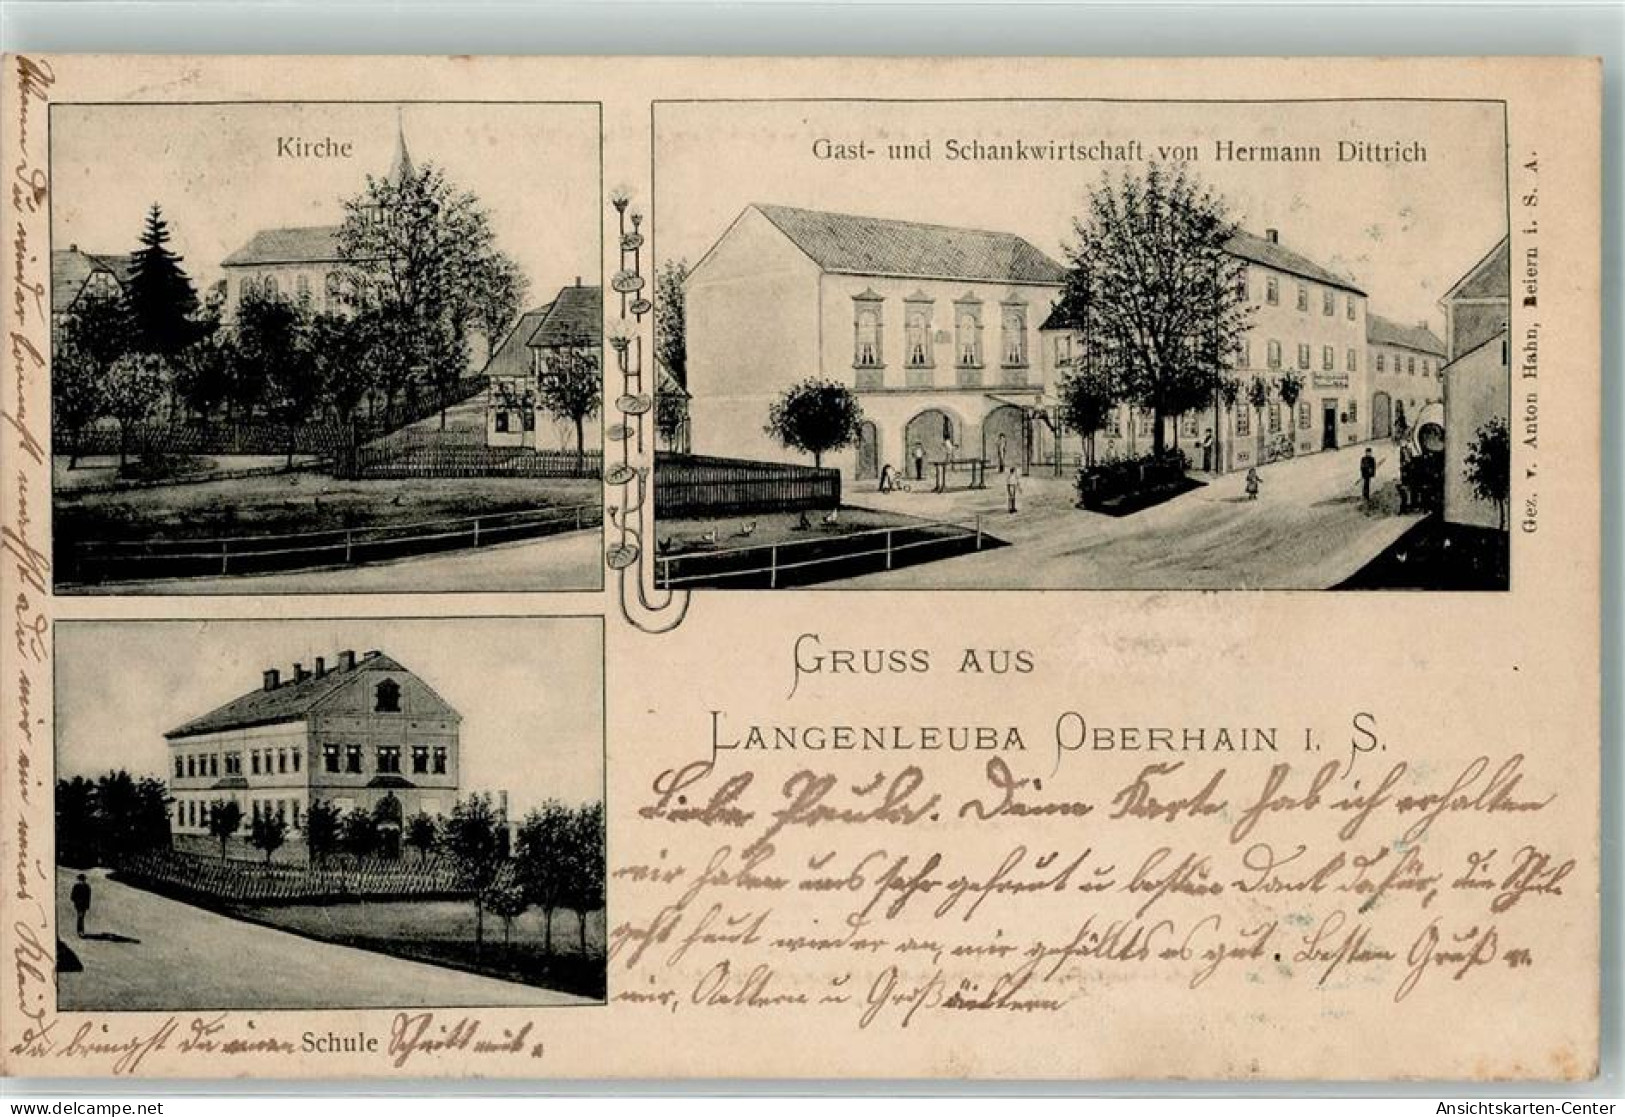 Kirche
Gast- und Schankwirtschaft von Hermann Dittrich
Gez. v. Anton Hahn, Beiern i. S. A.
GRUSS AUS
LANGENLEUBA OBERHAIN I. S.
Liebe Paula. Deine Karte hab ich erhalten
wir haben uns sehr gefreut u besten Dank dafür, die Schule
geht heut wieder an, mir gefällts es gut. Besten Gruß v.
mir, Aeltern u Großältern
Wenn Du wieder kommst nähst Du mir ein neues Kleid
da bringst du einen Schnitt mit.
Schule
delcampe.net
Ansichtskarten-Center